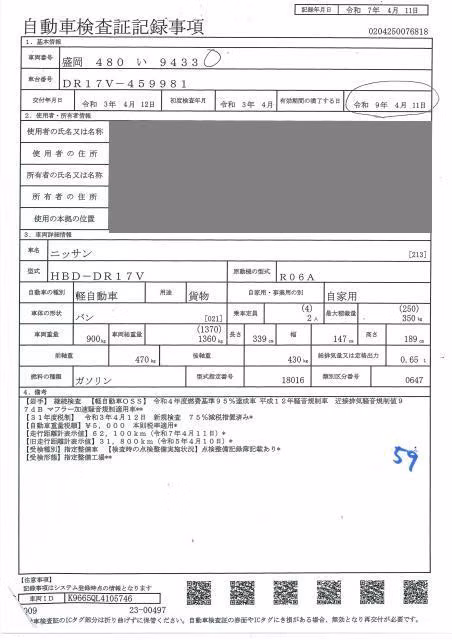 記録年月日 令和 7年 4月 11日
自動車検査証記録事項
0204250076818
1．基本情報
車両番号 盛岡 480 い 9433
車台番号 DR17V-459981
交付年月日 令和 3年 4月 12日 初度検査年月 令和 3年 4月 有効期間の満了する日 令和 9年 4月 11日
2．使用者・所有者情報
使用者の氏名又は名称
使用者の住所
所有者の氏名又は名称
所有者の住所
使用の本拠の位置
3．車両詳細情報
車名 ニッサン [213]
型式 HBD-DR17V 原動機の型式 R06A
自動車の種別 軽自動車 用途 貨物 自家用・事業用の別 自家用
車体の形状 バン [021] 乗車定員 (4) 2人 最大積載量 (250) 350kg
車両重量 900kg 車両総重量 (1370) 1360kg 長さ 339cm 幅 147cm 高さ 189cm
前軸重 470kg 後軸重 430kg 総排気量又は定格出力 0.65 L
燃料の種類 ガソリン 型式指定番号 18016 類別区分番号 0647
4．備考
【岩手】 継続検査 【軽自動車OSS】 令和4年度燃費基準95%達成車 平成12年騒音規制車 近接排気騒音規制値9
7dB マフラー加速騒音規制適用車**
【31年度税制】 令和3年4月12日 新規検査 75%減税措置済み*
【自動車重量税額】 ¥5,000 本則税率適用*
【走行距離計表示値】 62,100km (令和7年4月11日)*
【旧走行距離計表示値】 31,800km (令和5年4月10日)*
【受検種別】 指定整備車 【検査時の点検整備実施状況】 点検整備記録簿記載あり*
【受検形態】 指定整備工場**
59
【注意事項】
記録事項はシステム登録時点の情報となります
車両ID K9665QL4105746
009 23-00497
車検査証のICタグ部分は折り曲げずに保管ください。自動車検査証の券面やICタグにき損がある場合、無効となり再交付が必要です。